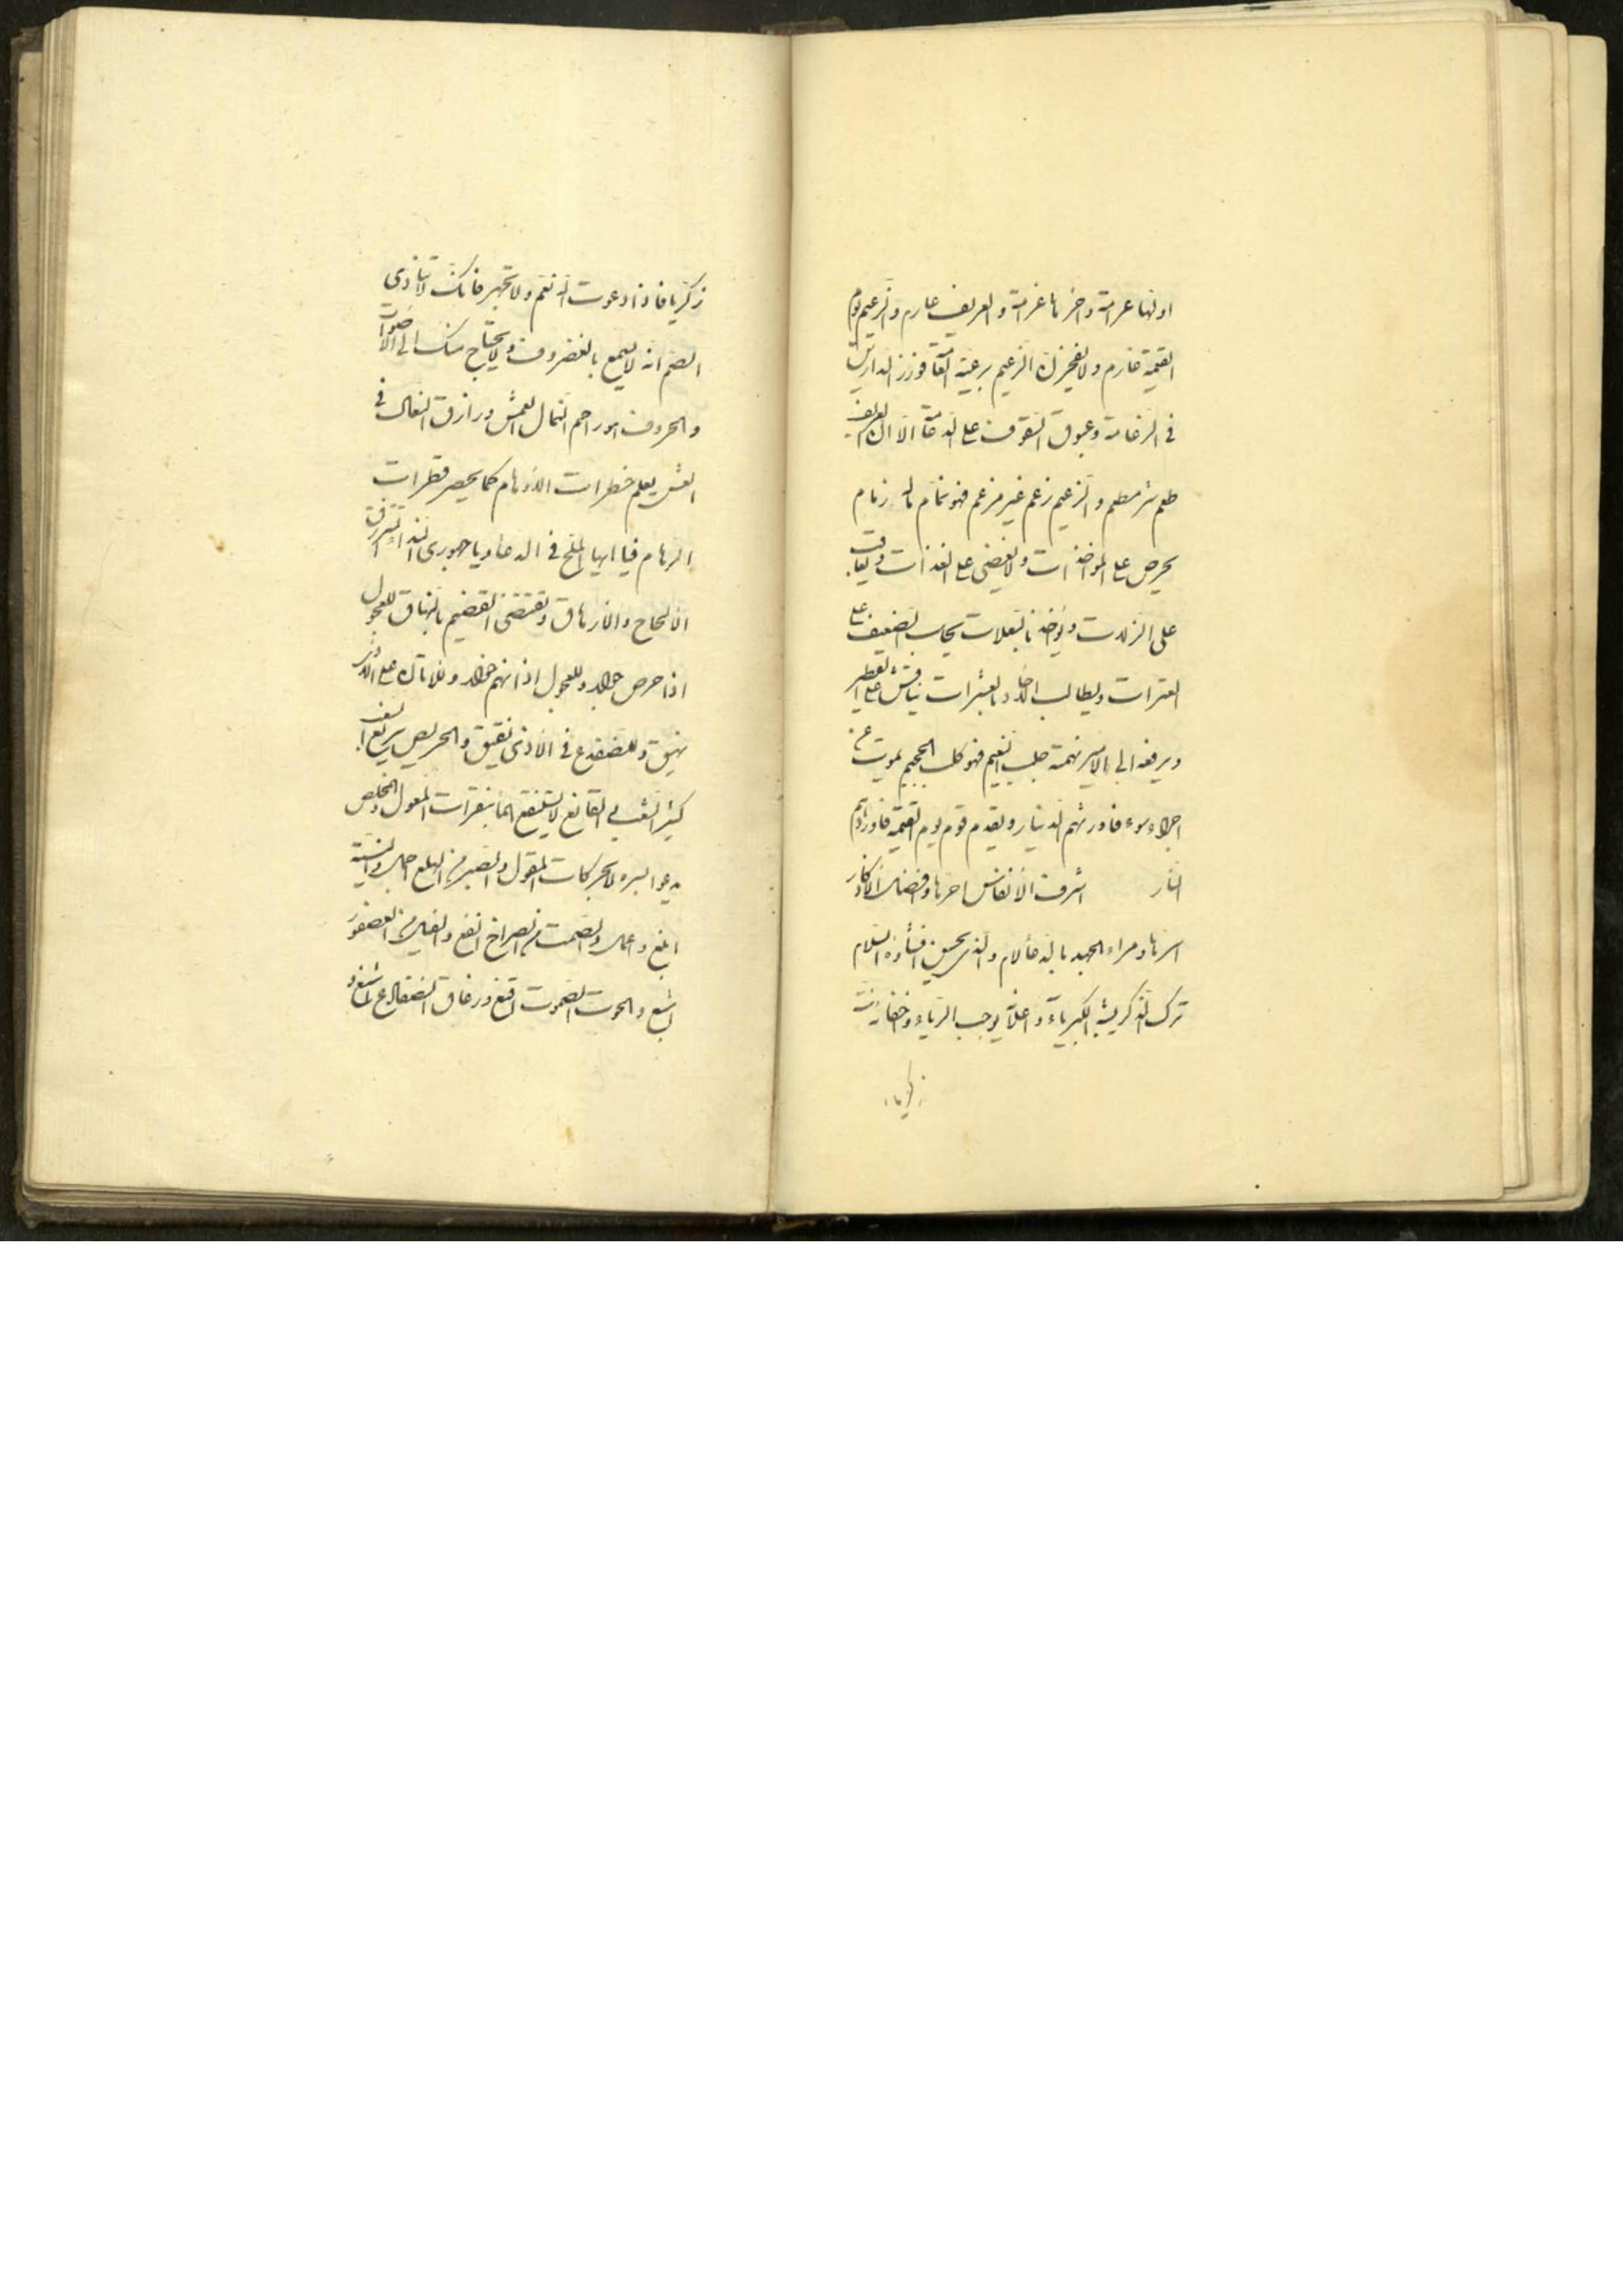 اولها عرامة واخرها غرامة والعريف عارم والزعيم يوم
القيمة غارم ولا يفخرن الزعيم برعية العامة فوزر الدارس
في الزعامة وعبوق السقوف على الدعامة الا ان العريف
طعم شر مطعم والزعيم زعم غير مزعم فهو نمام له زمام
يحرص على المواخذات ولا يغضى على القذات ويعاقب
على الزلات ويؤاخذ بالتعلات يحاسب الضعيف على
العثرات ويطالب الاخاد بالعشرات يناقش على القطمير
ويرفعه الى الامير نهمته جلب النعيم فهو كلب الجحيم يموت عن
اجراء سوء فاورثهم الدينار ويقدم قوم يوم القيمة فاوردهم
النار اشرف الانفاس احرها وافضل الاذكار
اسرها ومراء العبد بالدعا لام والذي يحسن افشاؤه السلام
ترك الذكر يشبه الكبرياء واعلانه يوجب الرياء واخفاؤه سنة
زكريا
زكريا فاذا دعوت الله نغم ولا تجهر فانك لا تنادى
الصم انه لا يسمع بالغضروف ولا يحتاج منك الى الاصوات
والحروف هو راحم النمال العمش ورازق النغاب في
العش يعلم خطرات الاوهام كما يحصر قطرات
الرهام فيا ايها الملح في الدعا ويا جهورى الندا لم تسترق
الالحاح والارهاق وتقتضى القضيم بالنهاق للعجول
اذا حرص جوار وللعجول اذا نهم خوار وللاتان على الارى
نهيق وللضفدع في الاذى نقيق والحريص سريع السغب
كثير الشغب والقانع لا يستنقع الماء بنقرات المعول والمخلص
يدعو السره لا بحركات المقول والصبر من الهلع اجمل والنية
ابلغ واعمل والصمت من الصراخ انفع والفيل من العصفور
اشبع والحوت الصموت اقنع ورغاق الضفادع اشنع و